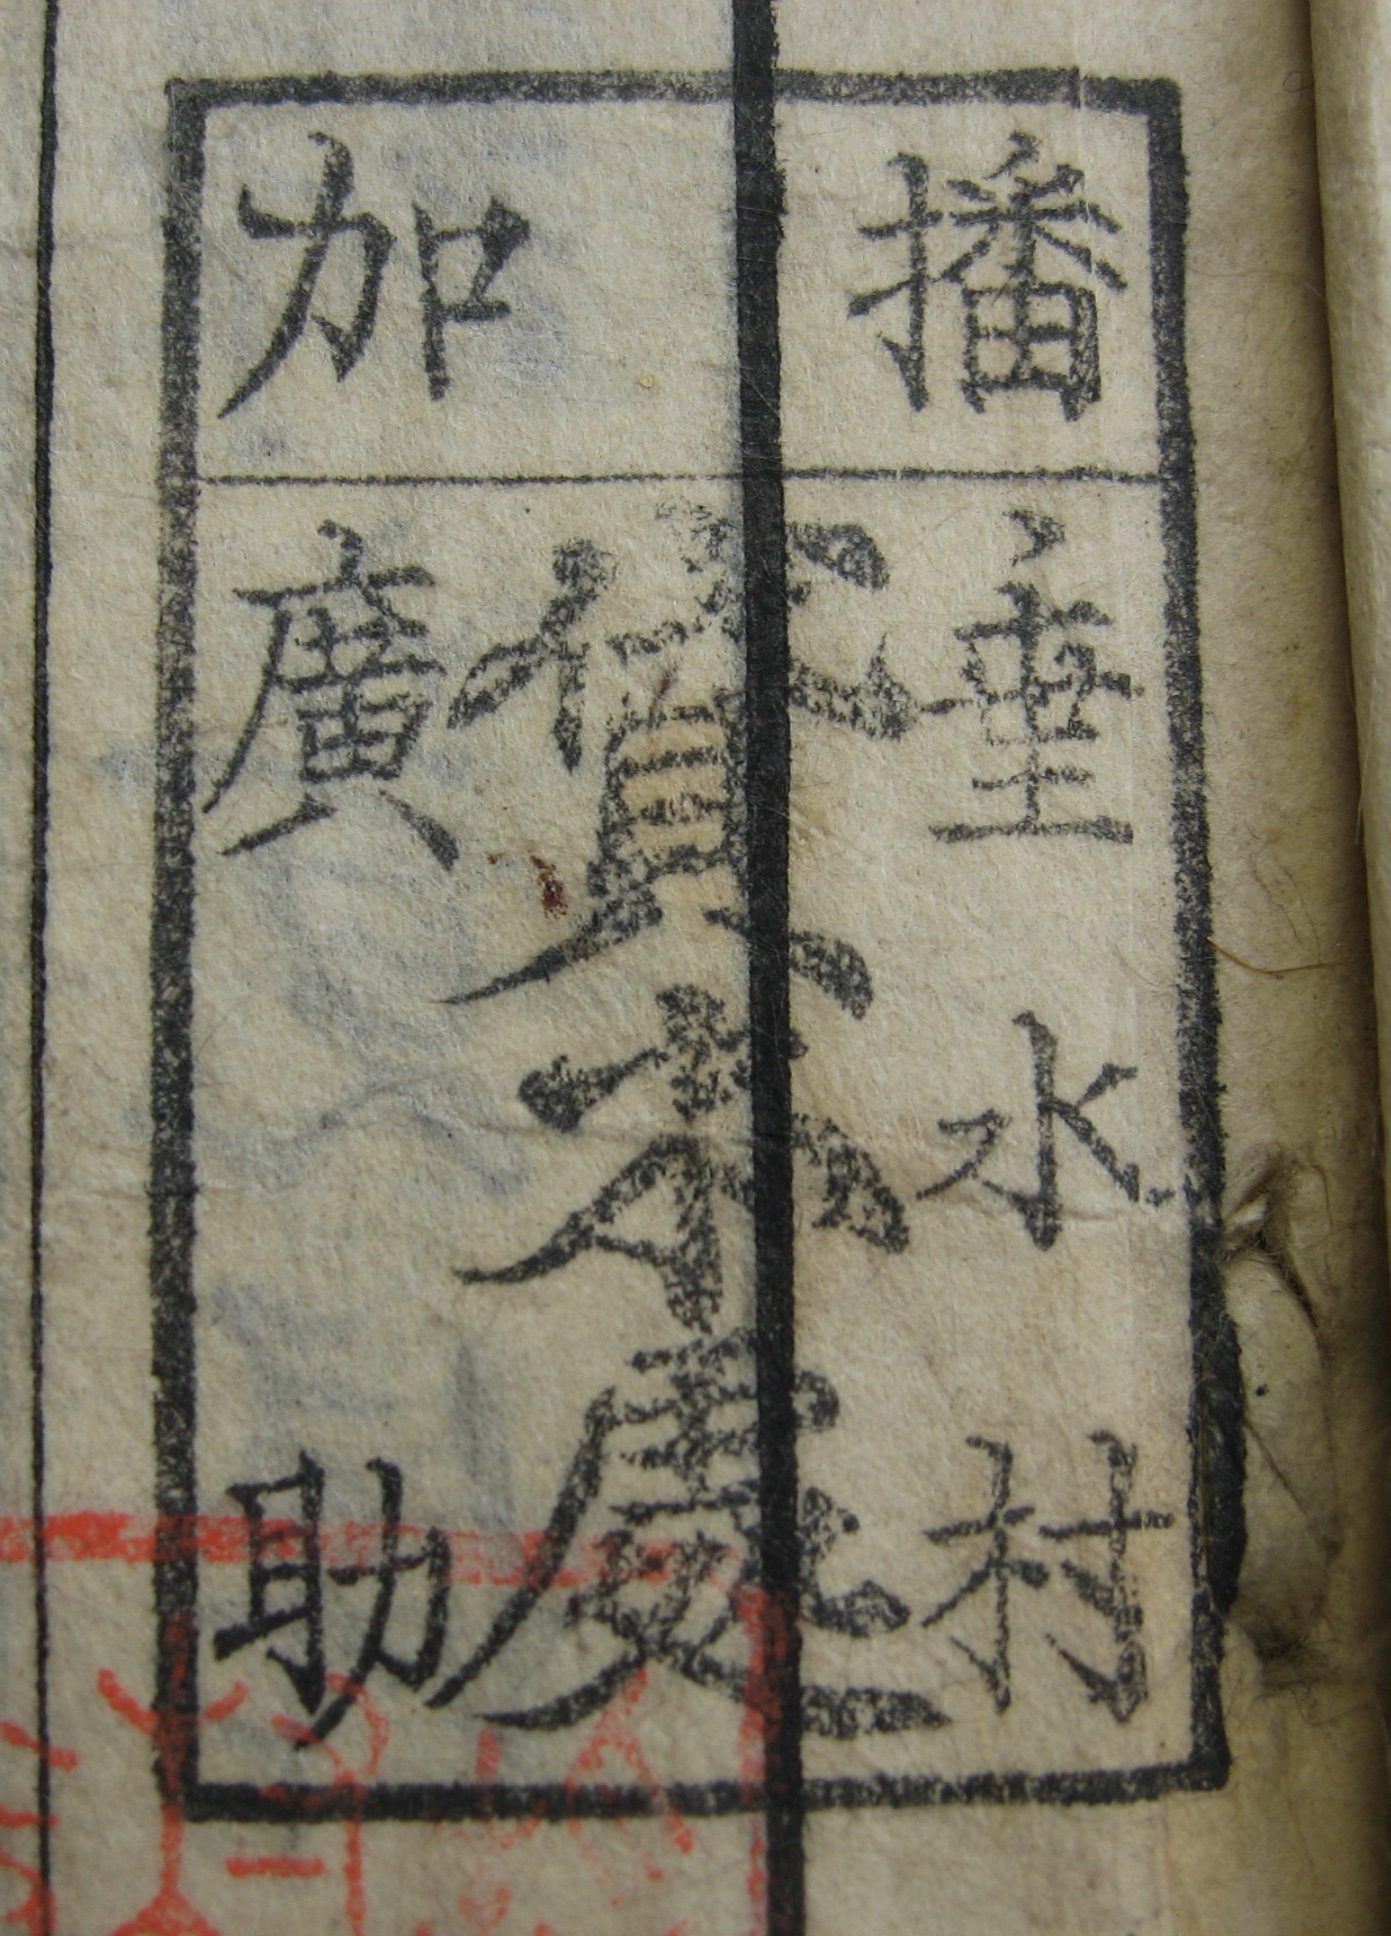 播 垂水村
貸本處
加 廣助